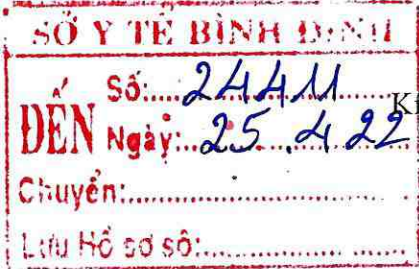 SỞ Y TẾ BÌNH ĐỊNH
ĐẾN
Số:....24411....
Ngày:..25.4.22
Chuyển:....................
Lưu Hồ sơ số:....................